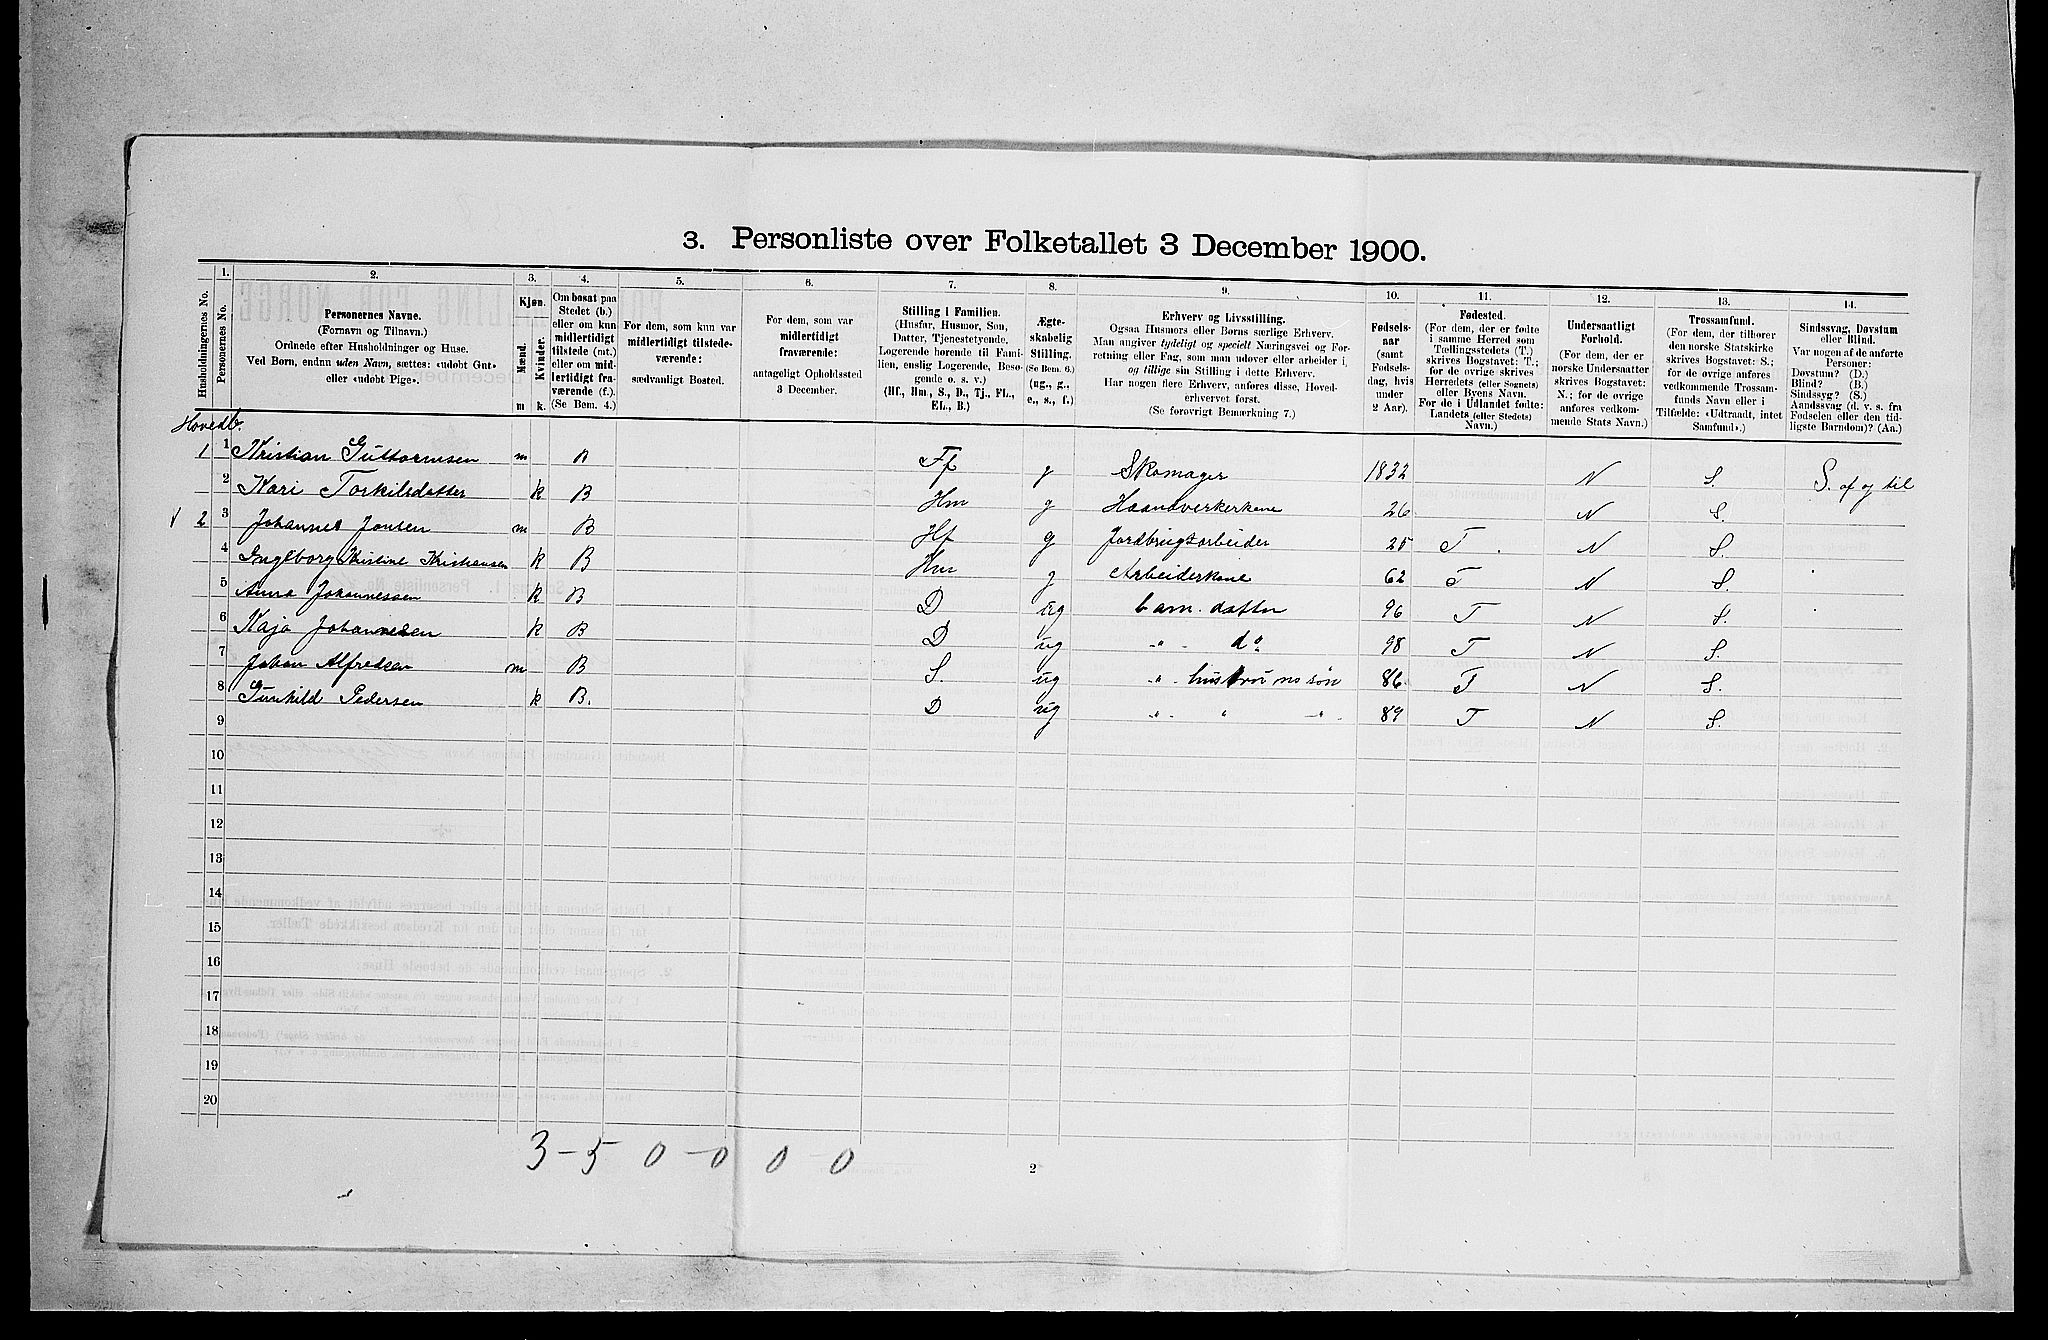 3. Personliste over Folketallet 3 December 1900.
Husholdningernes No.
1.
Personernes No.
2.
Personernes Navne.
(Fornavn og Tilnavn.)
Ordnede efter Husholdninger og Huse.
Ved Børn, endnu uden Navn, sættes: «udøbt Gut»
eller «udøbt Pige».
3.
Kjøn.
Mænd.
Kvinder.
m k.
4.
Om bosat paa
Stedet (b.)
eller om kun
midlertidigt
tilstede (mt.)
eller om mid-
lertidigt fra-
værende (f.).
(Se Bem. 4.)
5.
For dem, som kun var
midlertidigt tilstede-
værende:
sædvanligt Bosted.
6.
For dem, som var
midlertidigt
fraværende:
antageligt Opholdssted
3 December.
7.
Stilling i Familien.
(Husfar, Husmor, Søn,
Datter, Tjenestetyende,
Logerende hørende til Fami-
lien, enslig Logerende, Besø-
gende o. s. v.)
(Hf., Hm., S., D., Tj., FL.,
EL., B.)
8.
Ægte-
skabelig
Stilling.
(Se Bem. 6.)
(ug., g.,
e., s., f.)
9.
Erhverv og Livsstilling.
Ogsaa Husmors eller Børns særlige Erhverv.
Man angiver tydeligt og specielt Næringsvei og For-
retning eller Fag, som man udøver eller arbeider i,
og tillige sin Stilling i dette Erhverv.
Har nogen flere Erhverv, anføres disse, Hoved-
erhvervet først.
(Se forøvrigt Bemærkning 7.)
10.
Fødsels-
aar
(samt
Fødsels-
dag, hvis
under
2 Aar).
11.
Fødested.
(For dem, der er fødte
i samme Herred som
Tællingsstedets (T.)
skrives Bogstavet: T.;
for de øvrige skrives
Herredets (eller Sognets)
eller Byens Navn.
For de i Udlandet fødte:
Landets (eller Stedets)
Navn.)
12.
Undersaatligt
Forhold.
(For dem, der er
norske Undersaatter
skrives Bogstavet:
N.; for de øvrige
anføres vedkom-
mende Stats Navn.)
13.
Trossamfund.
(For dem, der tilhører
den norske Statskirke
skrives Bogstavet: S.;
for de øvrige anføres
vedkommende Trossam-
funds Navn eller i
Tilfælde: «Udtraadt, intet
Samfund».)
14.
Sindssvag, Døvstum
eller Blind.
Var nogen af de anførte
Personer:
Døvstum? (D.)
Blind? (B.)
Sindssyg? (S.)
Aandssvag (d. v. s. fra
Fødselen eller den tid-
ligste Barndom)? (Aa.)
Hovedb.
1 1 Kristian Guttormsen m B Ff g Skomager 1832 N S. S. af og til
2 Kari Torkilsdatter k B Hm g Haandverkerkone 26 N S.
2 3 Johannes Jonsen m B Hf g Jordbrugsarbeider 25 T. N S.
4 Ingeborg Kristine Kristiansen k B Hm g Arbeiderkone 62 T N S.
5 Anna Johannessen k B D ug barn. datter 96 T N S.
6 Kaja Johannesen k B D ug " do 98 T N S.
7 Johan Alfredsen m B S. ug " hustruens søn 86. T N S.
8 Gunhild Pedersen k B. D ug " " " 89 T N S.
9
10
11
12
13
14
15
16
17
18
19
20
3-5 0-0 0-0
2